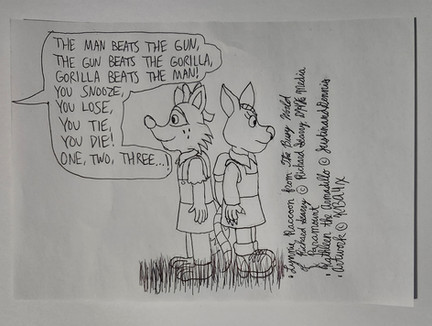 THE MAN BEATS THE GUN,
THE GUN BEATS THE GORILLA,
GORILLA BEATS THE MAN!
YOU SNOOZE,
YOU LOSE,
YOU TIE,
YOU DIE!
ONE, TWO, THREE...!
• Lynnie Raccoon from The Busy World
of Richard Scarry © Richard Scarry, Media
Paramount
• Kathleen the Armadillo © JustinandDennis
• Artwork ©